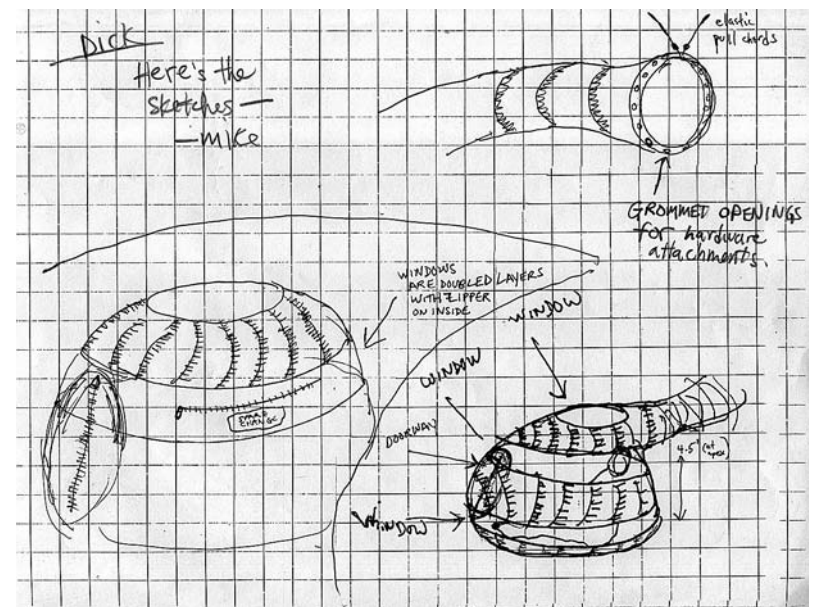 Dick
Here's the
sketches —
— mike
elastic
pull chords
GROMMED OPENINGS
for hardware
attachments.
WINDOWS
ARE DOUBLED LAYERS
WITH ZIPPER
ON INSIDE
CHANGE
WINDOW
WINDOW
DOORWAY
WINDOW
4.5' (at
apex)